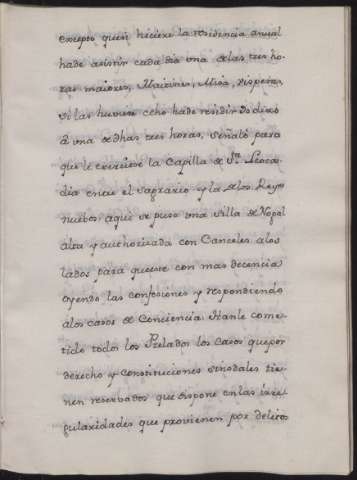 excepto quien hiciere la residencia anual
hade asistir cada dia una delas tres ho-
ras maiores, Maitines, Misa, Visperas,
si las huviere echo hade residir
à una de dhas tres horas, señalò para
que le exerciese la Capilla de Sta Leoca-
dia entre el sagrario y la delos Reyes
nuebos aqui se puso una silla de Nogal
alta y authorizada con Canceles alos
lados para queeste con mas decencia
oyendo las confesiones y respondiendo
alos casos de Conciencia. Hanle come-
tido todos los Prelados los Casos quepor
derecho y constituciones sinodales tie-
nen reservados que dispone enlas irre-
gularidades que provienen por delitos